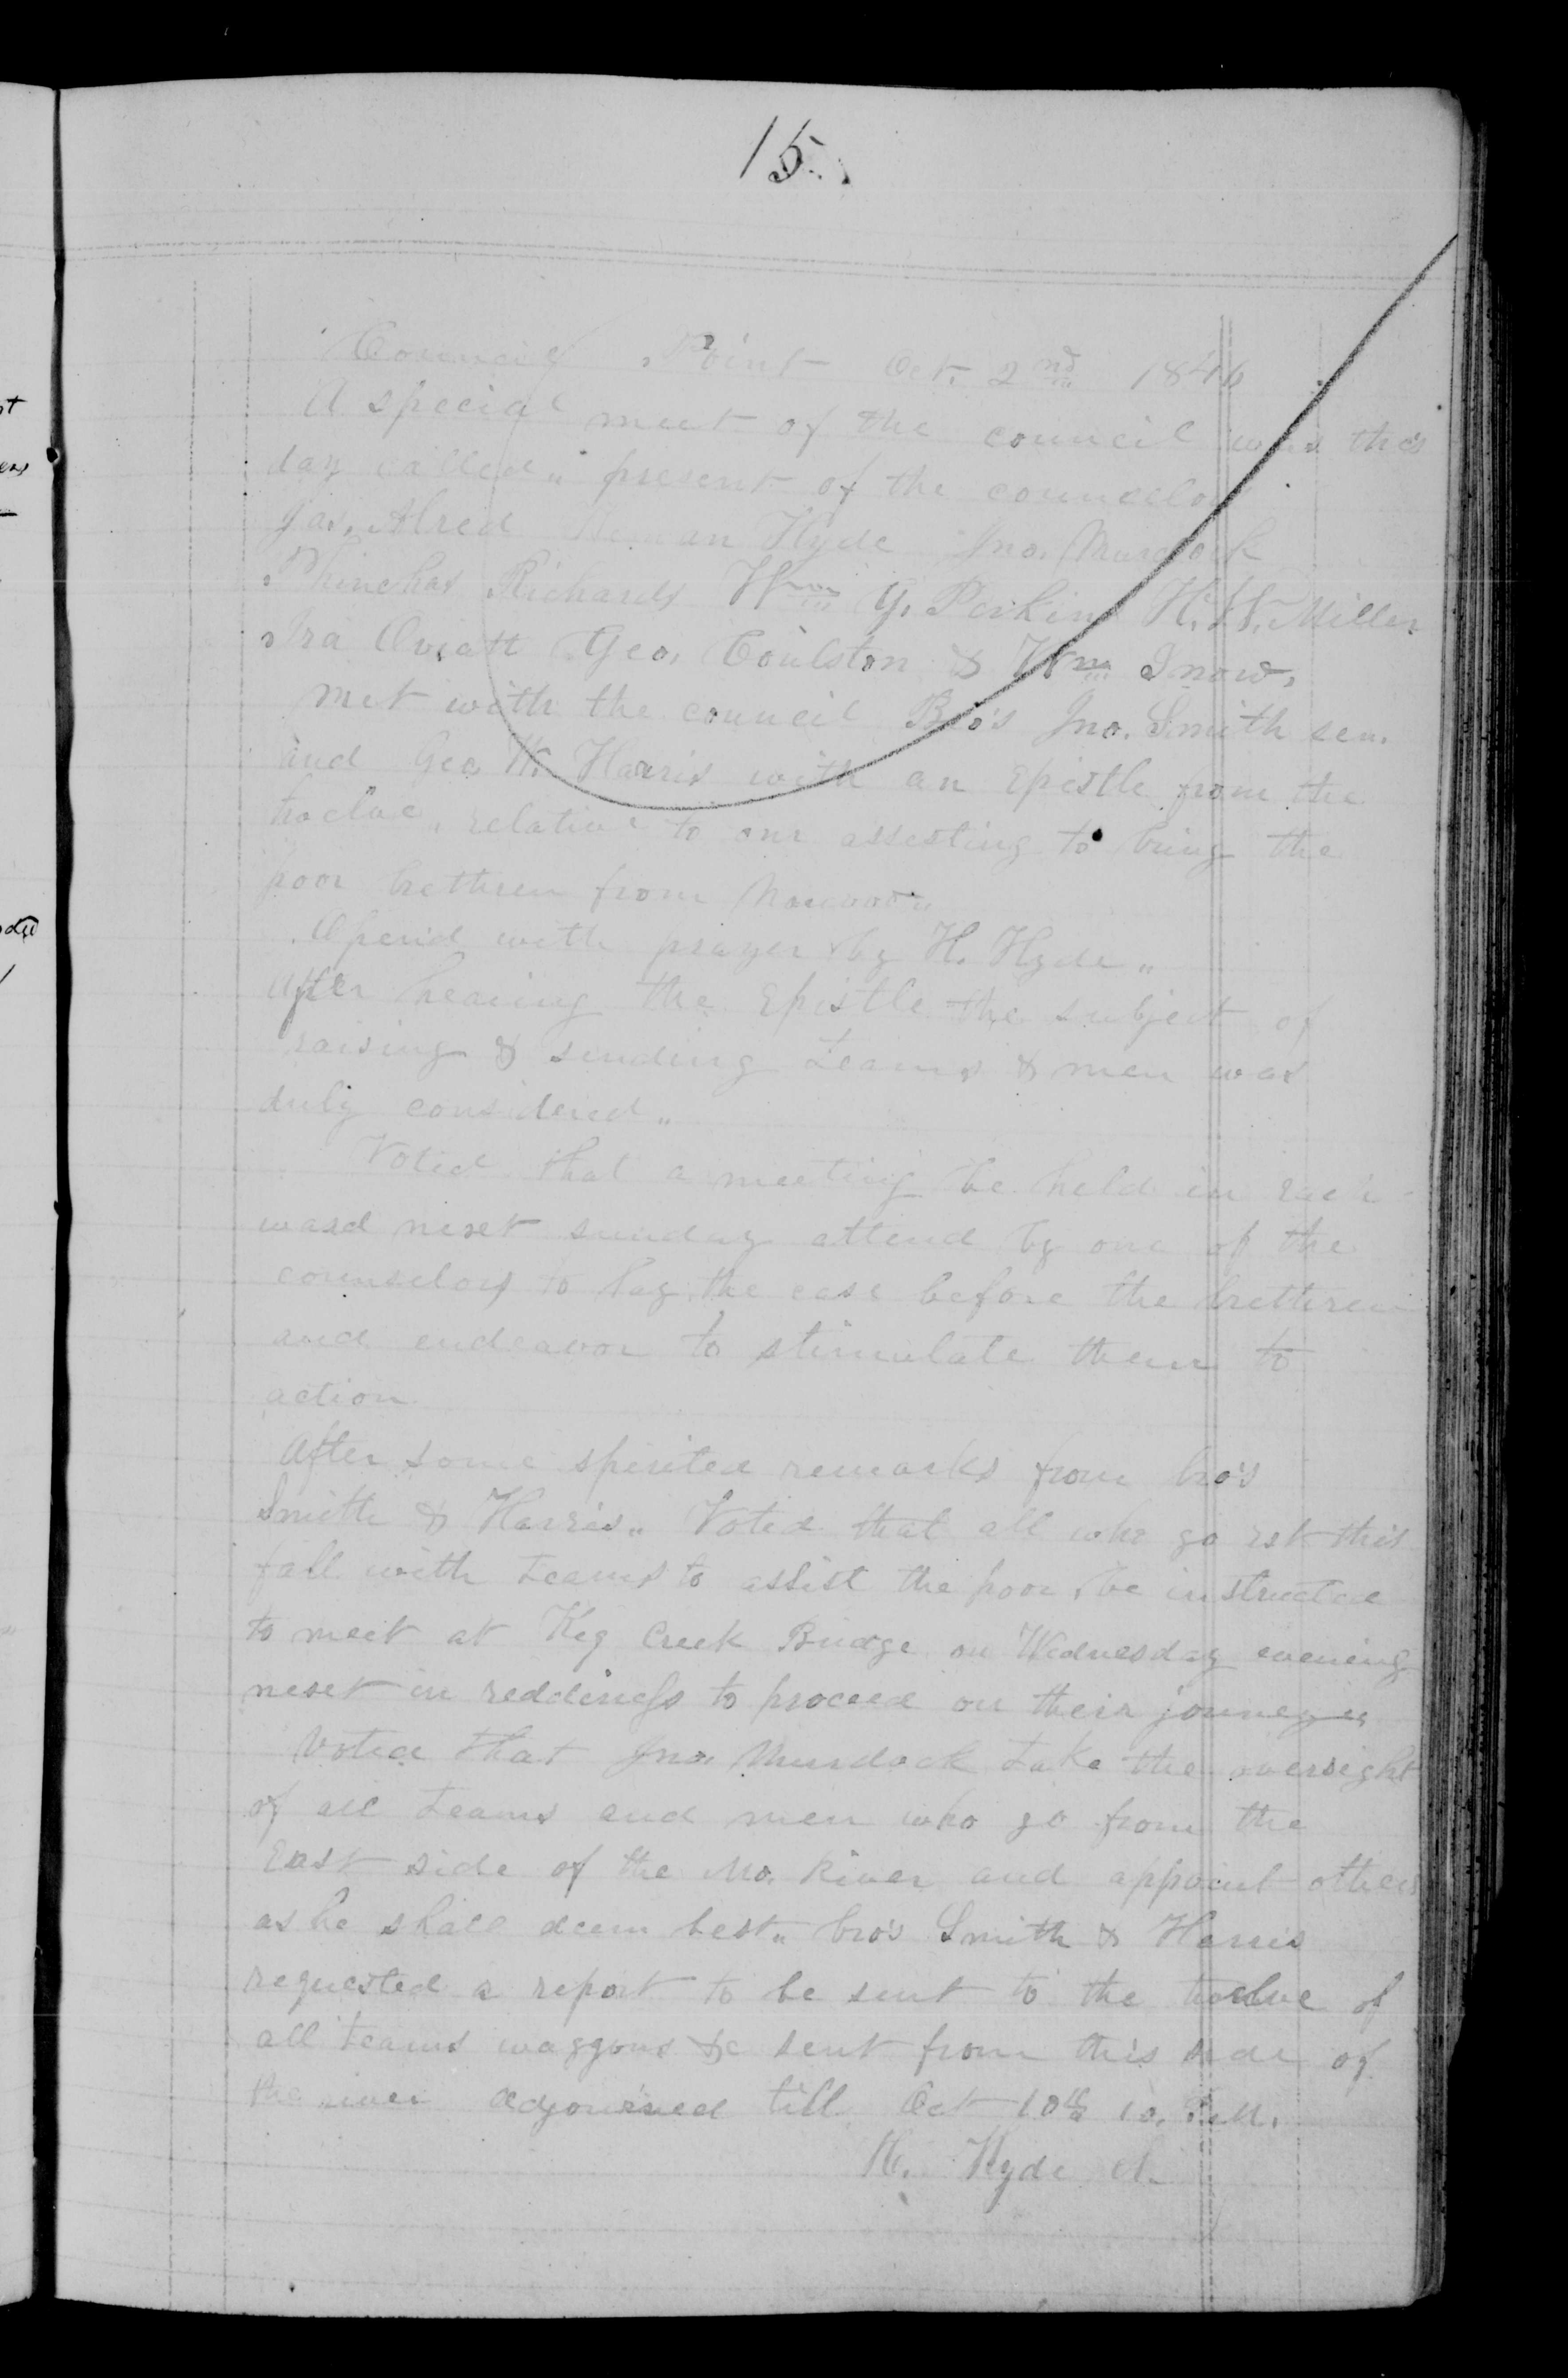 15.
Council Point Oct. 2nd 1846
A special meet of the council was this
day called„ present of the councelors
Jas. Alred Heman Hyde Jno. Murdock
Phinehas Richards Wm G. Perkins H. W. Miller
Ira Oviatt Geo. Coulston & Wm Snow,
met with the council Bro's Jno. Smith sen.
and Geo W. Harris with an Epistle from the
twelve, relative to our assesting to bring the
poor brethren from Nauvoo„
Opend with prayer by H. Hyde„
After hearing the Epistle the subject of
raising & sending teams & men was
duly considered„
Voted that a meeting be held in each
ward next sunday attend by one of the
counselors to lay the case before the brethren
and endeavor to stimulate them to
action
After some spirited remarks from bro's
Smith & Harris„ Voted that all who go est this
fall with teams to assist the poor, be instructed
to meet at Keg Creek Bridge on Wednesday evening
next in reddiness to proceed on their journey„
Voted that Jno. Murdock take the oversight
of all teams and men who go from the
East side of the Mo. River and appoint others
as he shall deem best„ bro's Smith & Harris
requested a report to be sent to the twelve of
all teams waggons &c sent from this side of
the river adjourned till Oct 10th 10,
H. Hyde